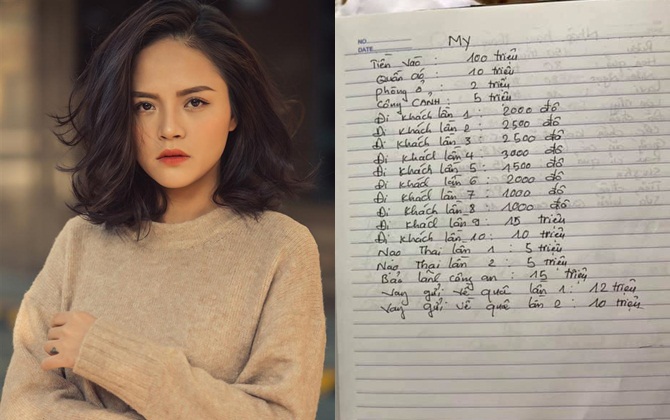 My
NO.
DATE
Tiền vào : 100 triệu
Quần áo : 10 triệu
Phòng ở : 2 triệu
Công CẢNH : 5 triệu
Đi khách lần 1 : 2000 đô
Đi khách lần 2 : 2500 đô
Đi khách lần 3 : 2500 đô
Đi khách lần 4 : 3000 đô
Đi khách lần 5 : 1500 đô
Đi khách lần 6 : 2000 đô
Đi khách lần 7 : 1000 đô
Đi khách lần 8 : 1000 đô
Đi khách lần 9 : 15 triệu
Đi khách lần 10 : 10 triệu
Nạo Thai lần 1 : 5 triệu
Nạo Thai lần 2 : 5 triệu
Bảo lãnh công an : 15 triệu
Vay gửi về quê lần 1 : 12 triệu
Vay gửi về quê lần 2 : 10 triệu